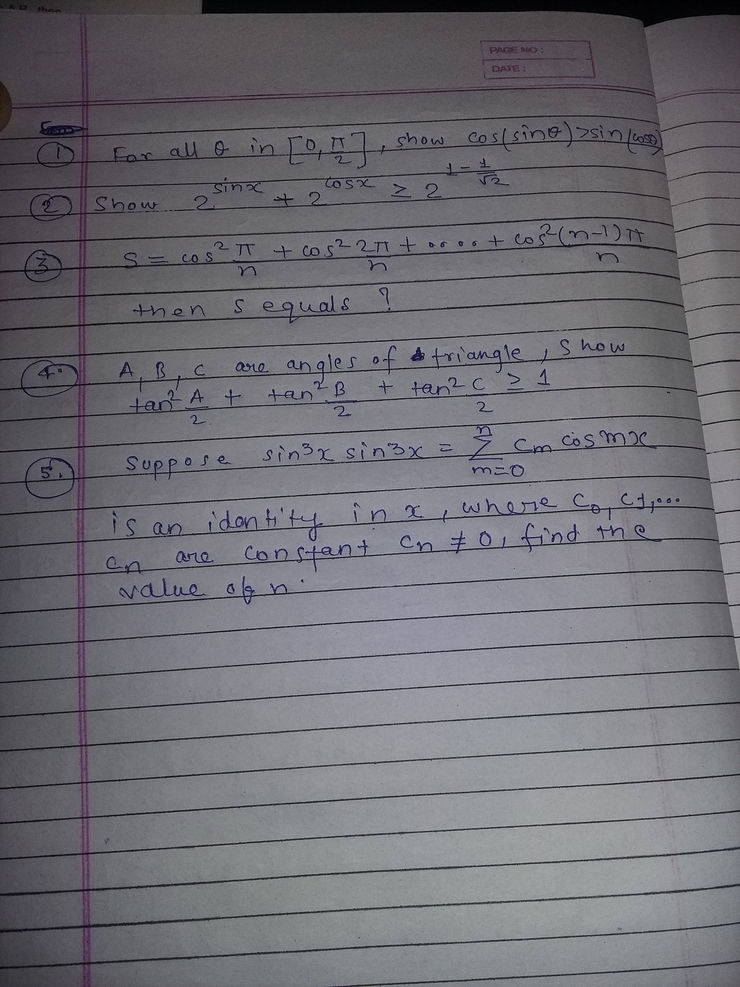 PAGE NO :
DATE :
① For all θ in [0, π/2], show cos(sinθ) > sin(cosθ)
② Show 2^sinx + 2^cosx ≥ 2^(1 - 1/√2)
③ S = cos² π/n + cos² 2π/n + ..... + cos² (n-1)π/n
then s equals ?
4. A, B, C are angles of triangle, show
tan² A/2 + tan² B/2 + tan² C/2 ≥ 1
5. Suppose sin³x sin3x = Σ_{m=0}^{n} Cm cosmx
is an idontity in x, where C0, C1,...
Cn are constant Cn ≠ 0, find the
value of n.